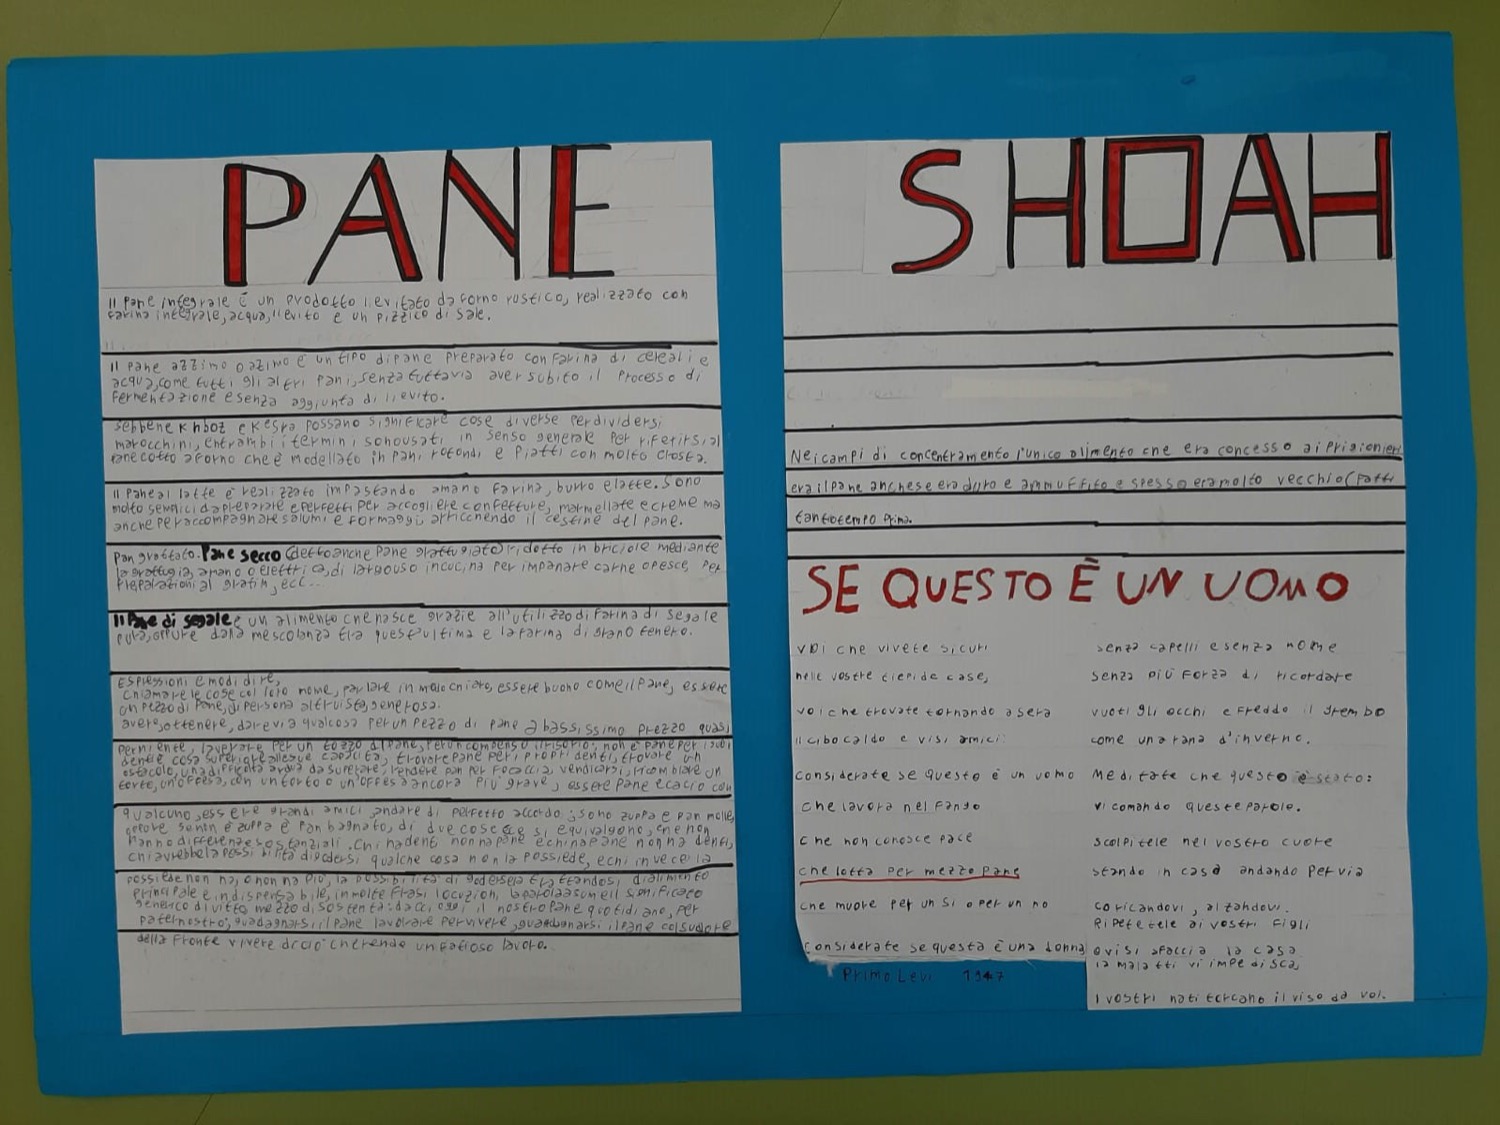 PANE
Il pane integrale è un prodotto lievitato da forno rustico, realizzato con
farina integrale, acqua, lievito e un pizzico di sale.
Il pane azzimo o azimo è un tipo di pane preparato con farina di cereali e
acqua, come tutti gli altri pani, senza tuttavia aver subito il processo di
fermentazione e senza aggiunta di lievito.
sebbene Khboz e Kesra possano significare cose diverse per dividersi
marocchini, entrambi i termini sono usati in senso generale per riferirsi al
pane cotto a forno che è modellato in pani, rotondi e piatti con molto crosta.
Il pane al latte è realizzato impastando a mano farina, burro e latte. Sono
molto semplici da preparare e perfetti per accogliere confetture, marmellate e creme ma
anche per accompagnare salumi e formaggi arricchendo il cestine del pane.
Pan grattato. Pane secco (detto anche pane grattugiato) ridotto in briciole mediante
la grattugia, a mano o elettrica, di largo uso in cucina per impanare carne o pesce, per
preparazioni al gratin, ecc...
Il Pane di segale è un alimento che nasce grazie all'utilizzo di farina di segale
pura, oppure dalla mescolanza tra quest'ultima e la farina di grano tenero.
Espressioni e modi dire,
chiamare le cose col loro nome, parlare in modo chiaro, essere buono come il pane, essere
un pezzo di pane, di persona altruista, generosa.
aver, ottenere, dare via qualcosa per un pezzo di pane a bassissimo prezzo quasi
per niente, lavorare per un tozzo di pane, per un compenso irrisorio; non è pane per i suoi
denti è cosa superiore alle sue capacità, trovare pane per i propri denti, trovare un
ostacolo, una difficoltà ardua da superare, rendere pan per focaccia, vendicarsi, ricambiare un
torto, un'offesa, con un torto o un'offesa ancora più grave, essere pane e cacio con
qualcuno, essere grandi amici, andare di perfetto accordo; sono zuppa e pan molle,
oppure se non è zuppa è pan bagnato, di due cose che si equivalgono, che non
hanno differenze sostanziali. Chi ha denti non ha pane e chi ha pane non ha denti,
chi avrebbe la possibilità di godersi qualche cosa non la possiede, e chi invece la
possiede non ha, o non ha più, la possibilità di godersela trattandosi di alimento
principale e indispensabile, in molte frasi locuzioni, la parola assume il significato
generico di vitto, mezzo di sostenta: dacci oggi il nostro pane quotidiano, per
paternostro; guadagnarsi il pane lavorare per vivere, guadagnarsi il pane col sudore
della fronte vivere di ciò che rendo un faticoso lavoro.
SHOAH
Nei campi di concentramento l'unico alimento che era concesso ai prigionieri
era il pane anche se era duro e ammuffito e spesso era molto vecchio (fatti
tantotempo prima.
SE QUESTO È UN UOMO
Voi che vivete sicuri
nelle vostre tiepide case,
voi che trovate tornando a sera
il cibo caldo e visi amici:
considerate se questo è un uomo
che lavora nel fango
che non conosce pace
che lotta per mezzo pane
che muore per un si o per un no
considerate se questa è una donna
senza capelli e senza nome
senza più forza di ricordare
vuoti gli occhi e freddo il grembo
come una rana d'inverno.
Meditate che questo è stato:
vi comando queste parole.
scolpitele nel vostro cuore
stando in casa andando per via
coricandovi, alzandovi.
Ripetetele ai vostri figli
o vi si sfaccia la casa
la malattia vi impedisca,
I vostri nati torcano il viso da voi.
Primo Levi 1947